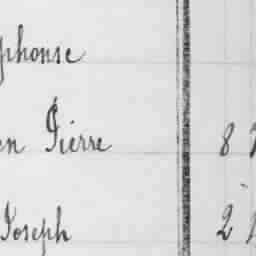 phonse
en Pierre 8
Joseph 2